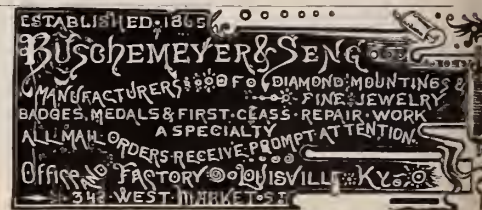 ESTABLISHED·1865
BUSCHEMEYER & SENG
MANUFACTURERS OF DIAMOND·MOUNTINGS &
FINE·JEWELRY
BADGES, MEDALS & FIRST·CLASS·REPAIR·WORK
A SPECIALTY
ALL·MAIL·ORDERS·RECEIVE·PROMPT·ATTENTION.
OFFICE AND FACTORY LOUISVILLE KY.
342·WEST·MARKET·ST